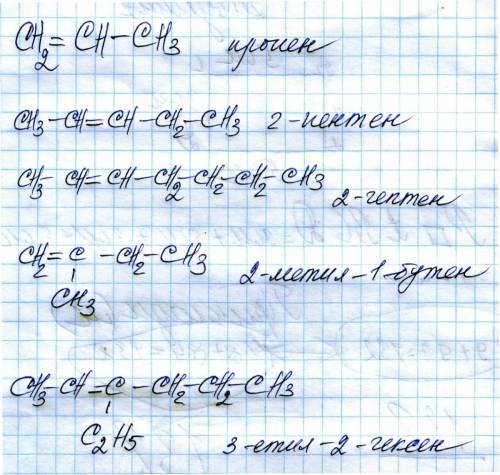 CH₂=CH-CH₃ пропен
CH₃-CH=CH-CH₂-CH₃ 2-пентен
CH₃-CH=CH-CH₂-CH₂-CH₂-CH₃ 2-гептен
CH₂=C-CH₂-CH₃ 2-метил-1-бутен
CH₃
CH₃-CH=C-CH₂-CH₂-CH₃
C₂H₅ 3-етил-2-гексен